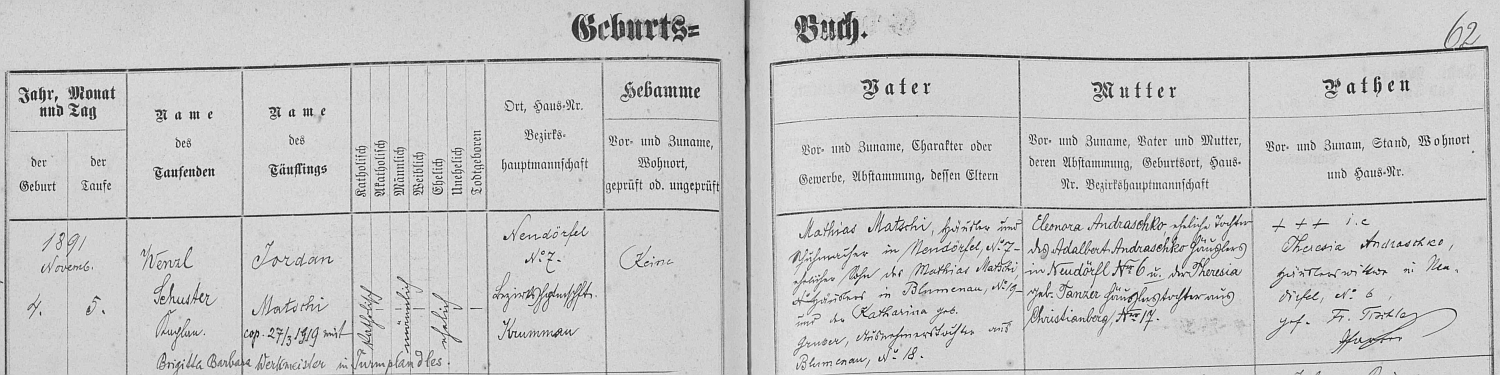 Geburts=
Buch.
62
Jahr, Monat
und Tag
der
Geburt
der
Taufe
Name
des
Taufenden
Name
des
Täuflings
Katholisch
Akatholisch
Männlich
Weiblich
Ehelich
Unehelich
Todtgeboren
Ort, Haus-Nr.
Bezirks-
hauptmannschaft
Hebamme
Vor- und Zuname,
Wohnort,
geprüft od. ungeprüft
Vater
Vor- und Zuname, Charakter oder
Gewerbe, Abstammung, dessen Eltern
Mutter
Vor- und Zuname, Vater und Mutter,
deren Abstammung, Geburtsort, Haus-
Nr. Bezirkshauptmannschaft
Pathen
Vor- und Zunam, Stand, Wohnort
und Haus-Nr.
1891
Novemb.
4. 5.
Wenzl
Schuster
Kaplan.
Jordan
Matschi
cop. 27/3 1919 mit
Brigitta Barbara Werkmeister in Turmplandles.
katholisch
männlich
ehelich
Neudörfel
No 7.
Bezirkshptmschft.
Krummau
Keine
Mathias Matschi, Häusler und
Schuhmacher in Neudörfel, No 7-
ehelicher Sohn des Mathias Matschi
Häuslers in Blumenau, No 19-
und der Katharina geb.
Gruser, Ausnehmerstochter aus
Blumenau, No 18.
Eleonora Andraschko, eheliche Tochter
des Adalbert Andraschko Häuslers
in Neudörfl Nro 6 u. der Theresia
geb. Tanzer Häuslerstochter aus
Christianberg Nro 17.
+ + + i.e
Theresia Andraschko,
Häuslerswittwe in Neu-
dörfel, No 6,
gef. Fr.
Pfarrer